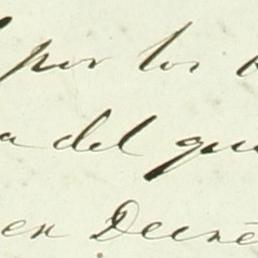 por los
a del que
en Decre